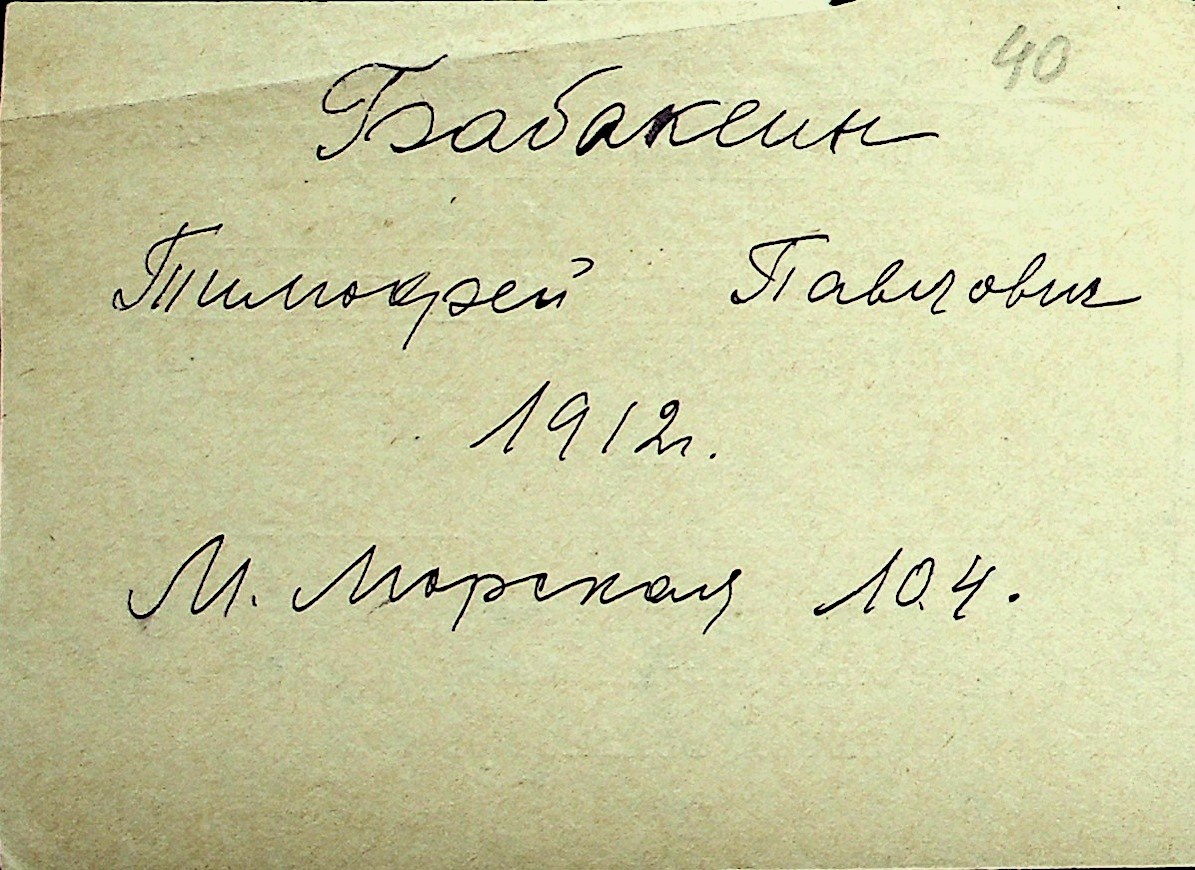 40
Бабакеин
Тимофей Павлович
1912г.
М. Морская 104.